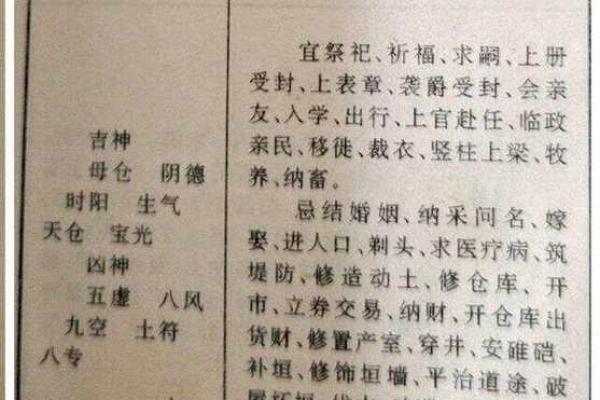 吉神
母仓 阴德
时阳 生气
天仓 宝光
凶神
五虚 八风
九空 土符
八专
宜祭祀、祈福、求嗣、上册
受封、上表章、袭爵受封、会亲
友、入学、出行、上官赴任、临政
亲民、移徙、裁衣、竖柱上梁、牧
养、纳畜。
忌结婚姻、纳采问名、嫁
娶、进人口、剃头、求医疗病、筑
堤防、修造动土、修仓库、开
市、立券交易、纳财、开仓库出
货财、修置产室、穿井、安碓硙、
补垣、修饰垣墙、平治道涂、破